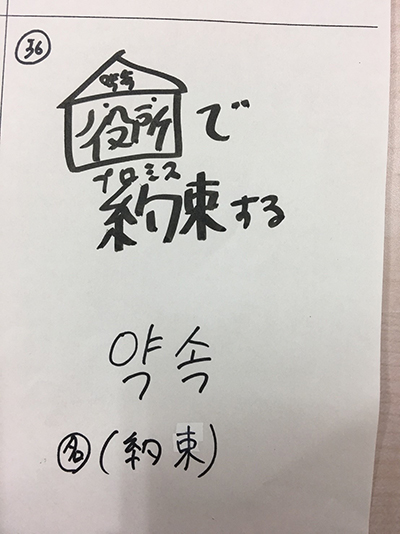 36
役所で
プロミス
約束する
약속
名(約束)